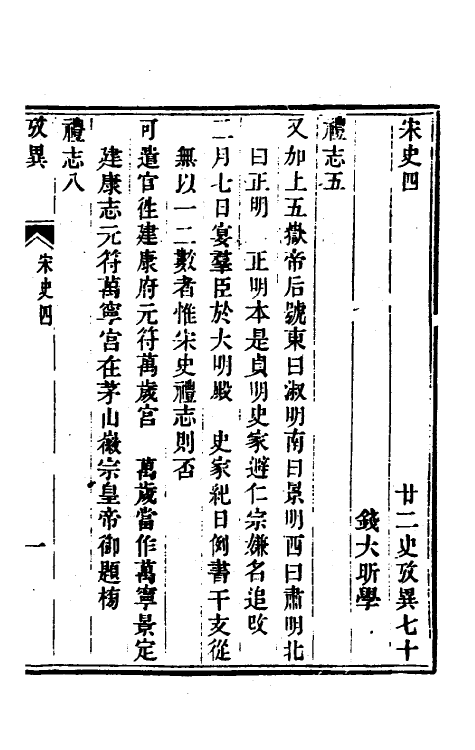 宋史四　廿二史攷異七十
錢大昕學
禮志五
又加上五嶽帝后號東曰淑明南曰景明西曰肅明北
曰正明　正明本是貞明史家避仁宗嫌名追改
二月七日宴羣臣於大明殿　史家紀日例書干支從
無以一二數者惟宋史禮志則否
可遣官徃建康府元符萬歲宮　萬歲當作萬寧景定
建康志元符萬寧宮在茅山徽宗皇帝御題榜
禮志八
攷異　宋史四　一